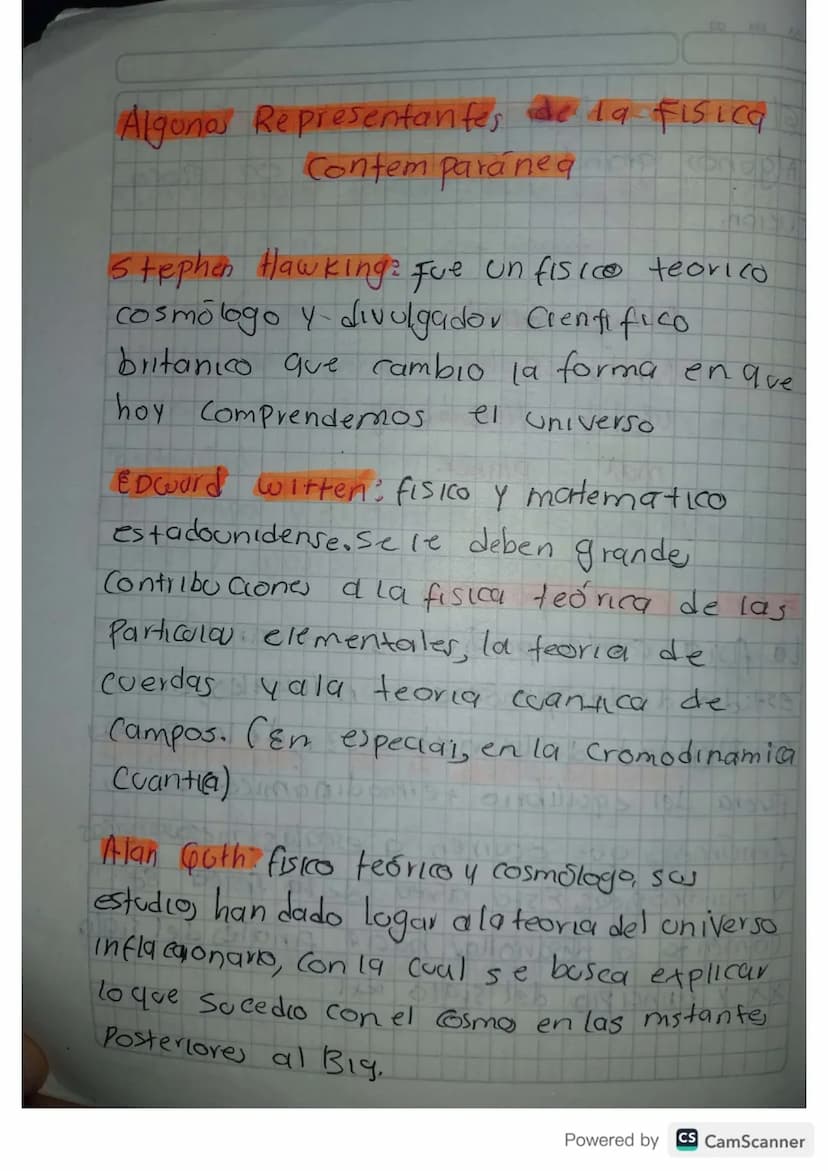 Algunos Representantes de la FISICA
Contemporánea
Stephen Hawking: Fue un fisico teorico
cosmólogo y divulgador Cientifico
britanico que cambio la forma en que
hoy comprendemos el universo
EDward witten: fisico y matematico
estadounidense. Se le deben grandes
Contribuciones a la fisica teórica de las
Particulas elementales, la teoria de
cuerdas y a la teoria cuantica de
Campos. (En especial, en la cromodinamica
Cuantica)
Alan Guth: fisico teórico y cosmólogo, sus
estudios han dado lugar a la teoria del universo
inflacionario, con la cual se busca explicar
lo que sucedio con el cosmos en las instantes
Posteriores al Big.
Powered by CS CamScanner